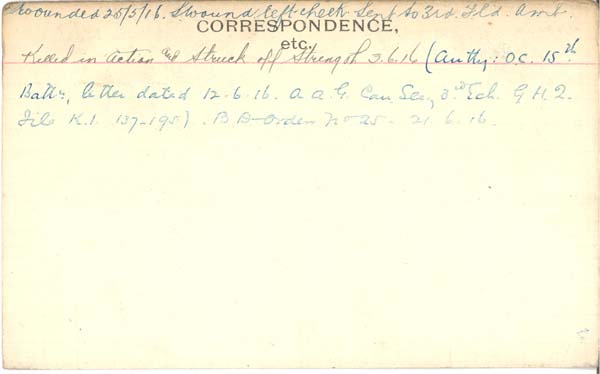 Wounded 25/5/16. S wound left cheek Sent to 3rd. Fld. Amb.
CORRESPONDENCE,
etc.
Killed in action and Struck off Strength 3.6.16 (Authy: O.C. 15th
Battn, letter dated 12.6.16. A.A.G. Can Sec, 3rd Ech. G.H.Q.
File K.1. 137-195). B D Order No 25 - 21.6.16.